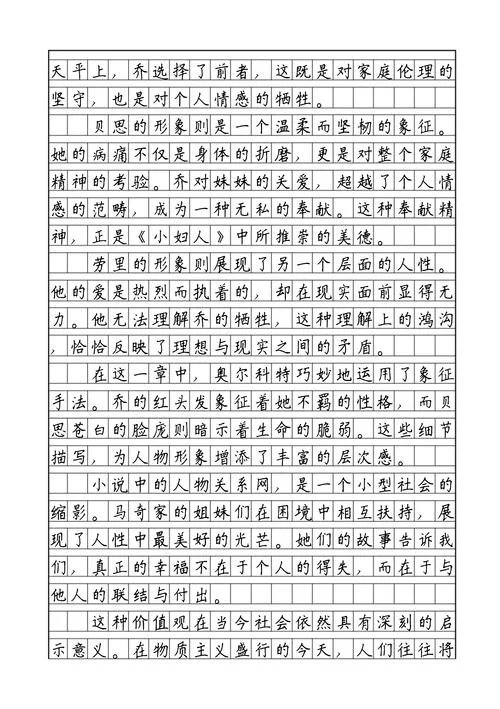 天平上，乔选择了前者，这既是对家庭伦理的
坚守，也是对个人情感的牺牲。
贝思的形象则是一个温柔而坚韧的象征。
她的病痛不仅是身体的折磨，更是对整个家庭
精神的考验。乔对妹妹的关爱，超越了个人情
感的范畴，成为一种无私的奉献。这种奉献精
神，正是《小妇人》中所推崇的美德。
劳里的形象则展现了另一个层面的人性。
他的爱是热烈而执着的，却在现实面前显得无
力。他无法理解乔的牺牲，这种理解上的鸿沟
，恰恰反映了理想与现实之间的矛盾。
在这一章中，奥尔科特巧妙地运用了象征
手法。乔的红头发象征着她不羁的性格，而贝
思苍白的脸庞则暗示着生命的脆弱。这些细节
描写，为人物形象增添了丰富的层次感。
小说中的人物关系网，是一个小型社会的
缩影。马奇家的姐妹们在困境中相互扶持，展
现了人性中最美好的光芒。她们的故事告诉我
们，真正的幸福不在于个人的得失，而在于与
他人的联结与付出。
这种价值观在当今社会依然具有深刻的启
示意义。在物质主义盛行的今天，人们往往将